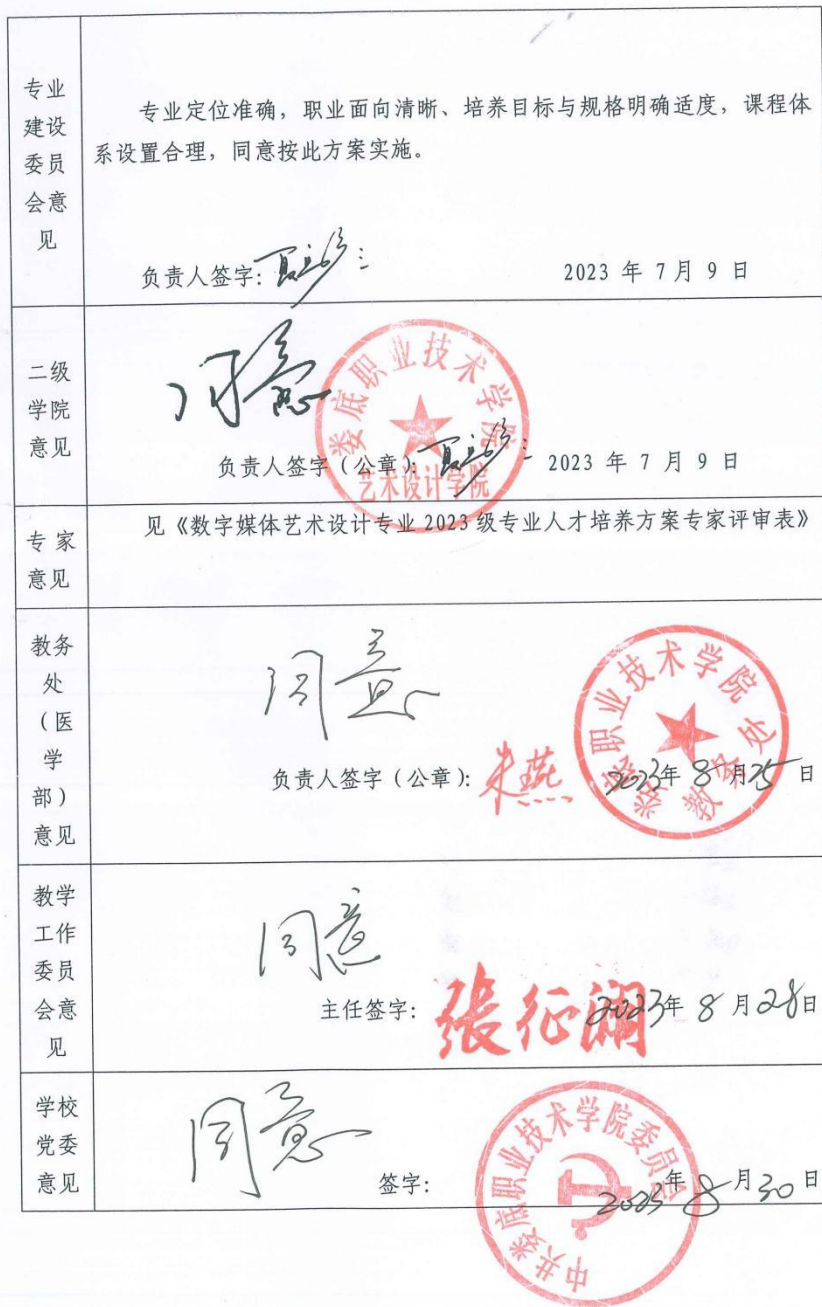 专业
建设
委员
会意
见
专业定位准确，职业面向清晰、培养目标与规格明确适度，课程体
系设置合理，同意按此方案实施。
负责人签字：
2023 年 7月 9 日
二级
学院
意见
同意
娄底职业技术学院
艺术设计学院
负责人签字（公章）：
2023 年 7 月 9 日
专家
意见
见《数字媒体艺术设计专业 2023 级专业人才培养方案专家评审表》
教务
处
（医
学
部）
意见
同意
负责人签字（公章）：朱燕
2023年 8 月25 日
娄底职业技术学院
教务处
教学
工作
委员
会意
见
同意
主任签字：张征澜
2023年 8 月28日
学校
党委
意见
同意
签字：
2023年 8 月30 日
中共娄底职业技术学院委员会